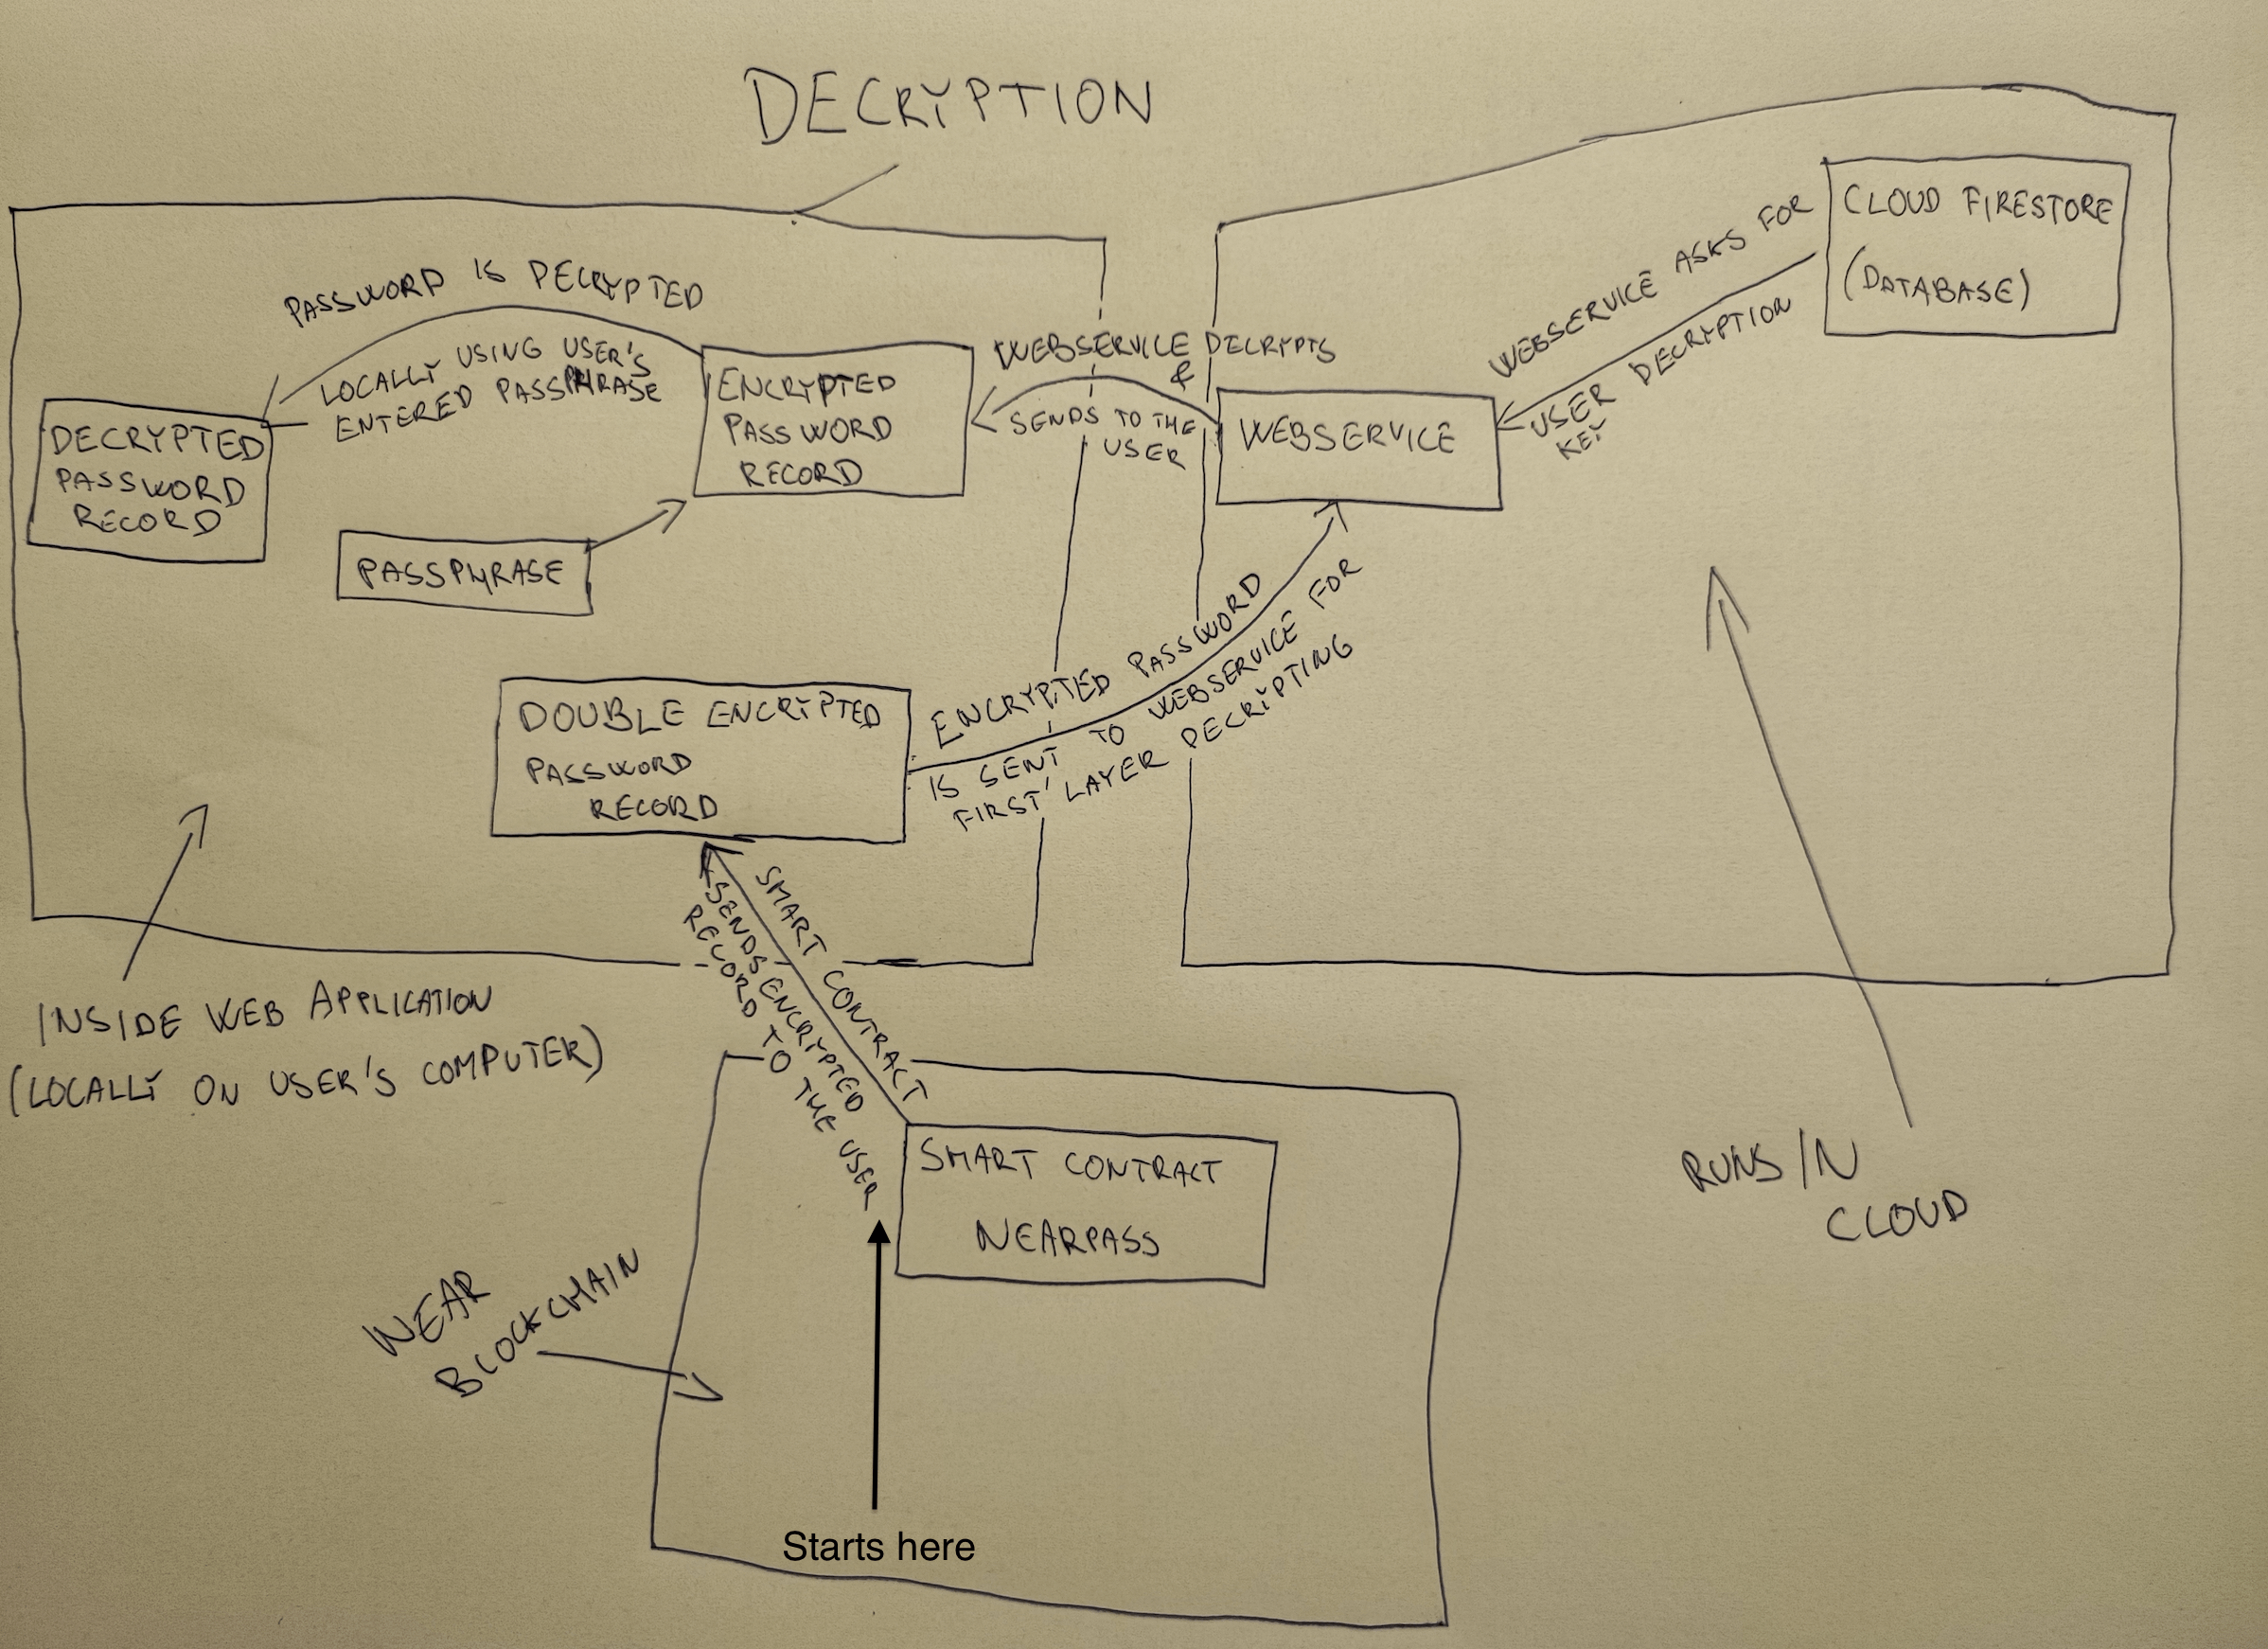 DECRYPTION
PASSWORD IS DECRYPTED
LOCALLY USING USER'S
ENTERED PASSPHRASE
DECRYPTED
PASSWORD
RECORD
ENCRYPTED
PASSWORD
RECORD
PASSPHRASE
WEBSERVICE DECRYPTS
&
SENDS TO THE
USER
WEBSERVICE
WEBSERVICE ASKS FOR
USER DECRYPTION
KEY
CLOUD FIRESTORE
(DATABASE)
DOUBLE ENCRYPTED
PASSWORD
RECORD
ENCRYPTED PASSWORD
IS SENT TO WEBSERVICE FOR
FIRST LAYER DECRIPTING
SMART CONTRACT
SENDS ENCRYPTED
RECORD TO THE USER
INSIDE WEB APPLICATION
(LOCALLY ON USER'S COMPUTER)
SMART CONTRACT
NEARPASS
RUNS IN
CLOUD
NEAR
BLOCKCHAIN
Starts here